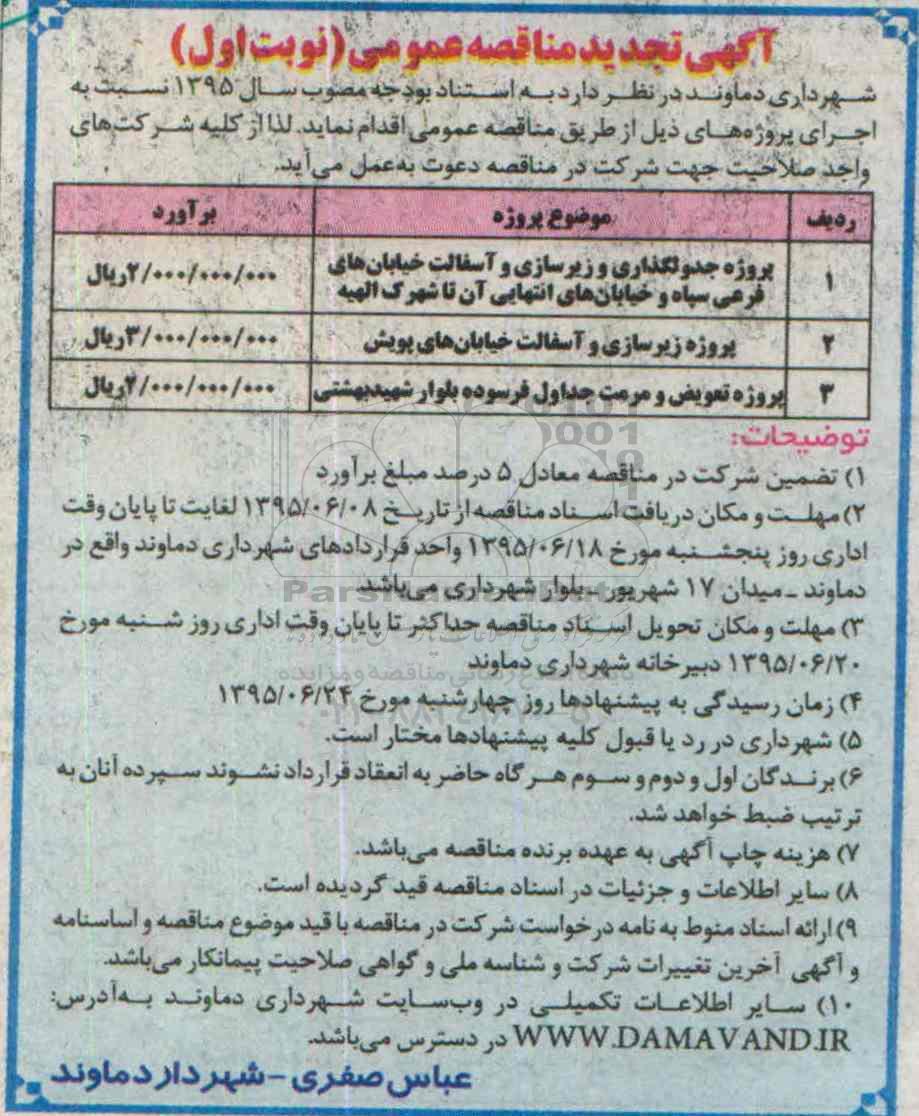 آگهی تجدید مناقصه عمومی (نوبت اول)
شهرداری دماوند در نظر دارد به استناد بودجه مصوب سال ۱۳۹۵ نسبت به
اجرای پروژه‌های ذیل از طریق مناقصه عمومی اقدام نماید. لذا از کلیه شرکت‌های
واجد صلاحیت جهت شرکت در مناقصه دعوت به‌عمل می‌آید.
ردیف موضوع پروژه برآورد
پروژه جدولگذاری و زیرسازی و آسفالت خیابان‌های
۱ فرعی سپاه و خیابان‌های انتهایی آن تا شهرک الهیه ۲/۰۰۰/۰۰۰/۰۰۰ریال
۲ پروژه زیرسازی و آسفالت خیابان‌های پویش ۳/۰۰۰/۰۰۰/۰۰۰ریال
۳ پروژه تعویض و مرمت جداول فرسوده بلوار شهیدبهشتی ۲/۰۰۰/۰۰۰/۰۰۰ریال
توضیحات:
۱) تضمین شرکت در مناقصه معادل ۵ درصد مبلغ برآورد
۲) مهلت و مکان دریافت اسناد مناقصه از تاریخ ۱۳۹۵/۰۶/۰۸ لغایت تا پایان وقت
اداری روز پنجشنبه مورخ ۱۳۹۵/۰۶/۱۸ واحد قراردادهای شهرداری دماوند واقع در
دماوند ـ میدان ۱۷ شهریور ـ بلوار شهرداری می‌باشد.
۳) مهلت و مکان تحویل اسناد مناقصه حداکثر تا پایان وقت اداری روز شنبه مورخ
۱۳۹۵/۰۶/۲۰ دبیرخانه شهرداری دماوند
۴) زمان رسیدگی به پیشنهادها روز چهارشنبه مورخ ۱۳۹۵/۰۶/۲۴
۵) شهرداری در رد یا قبول کلیه پیشنهادها مختار است.
۶) برندگان اول و دوم و سوم هرگاه حاضر به انعقاد قرارداد نشوند سپرده آنان به
ترتیب ضبط خواهد شد.
۷) هزینه چاپ آگهی به عهده برنده مناقصه می‌باشد.
۸) سایر اطلاعات و جزئیات در اسناد مناقصه قید گردیده است.
۹) ارائه اسناد منوط به نامه درخواست شرکت در مناقصه با قید موضوع مناقصه و اساسنامه
و آگهی آخرین تغییرات شرکت و شناسه ملی و گواهی صلاحیت پیمانکار می‌باشد.
۱۰) سایر اطلاعات تکمیلی در وب‌سایت شهرداری دماوند به‌آدرس:
WWW.DAMAVAND.IR در دسترس می‌باشد.
عباس صفری - شهردار دماوند